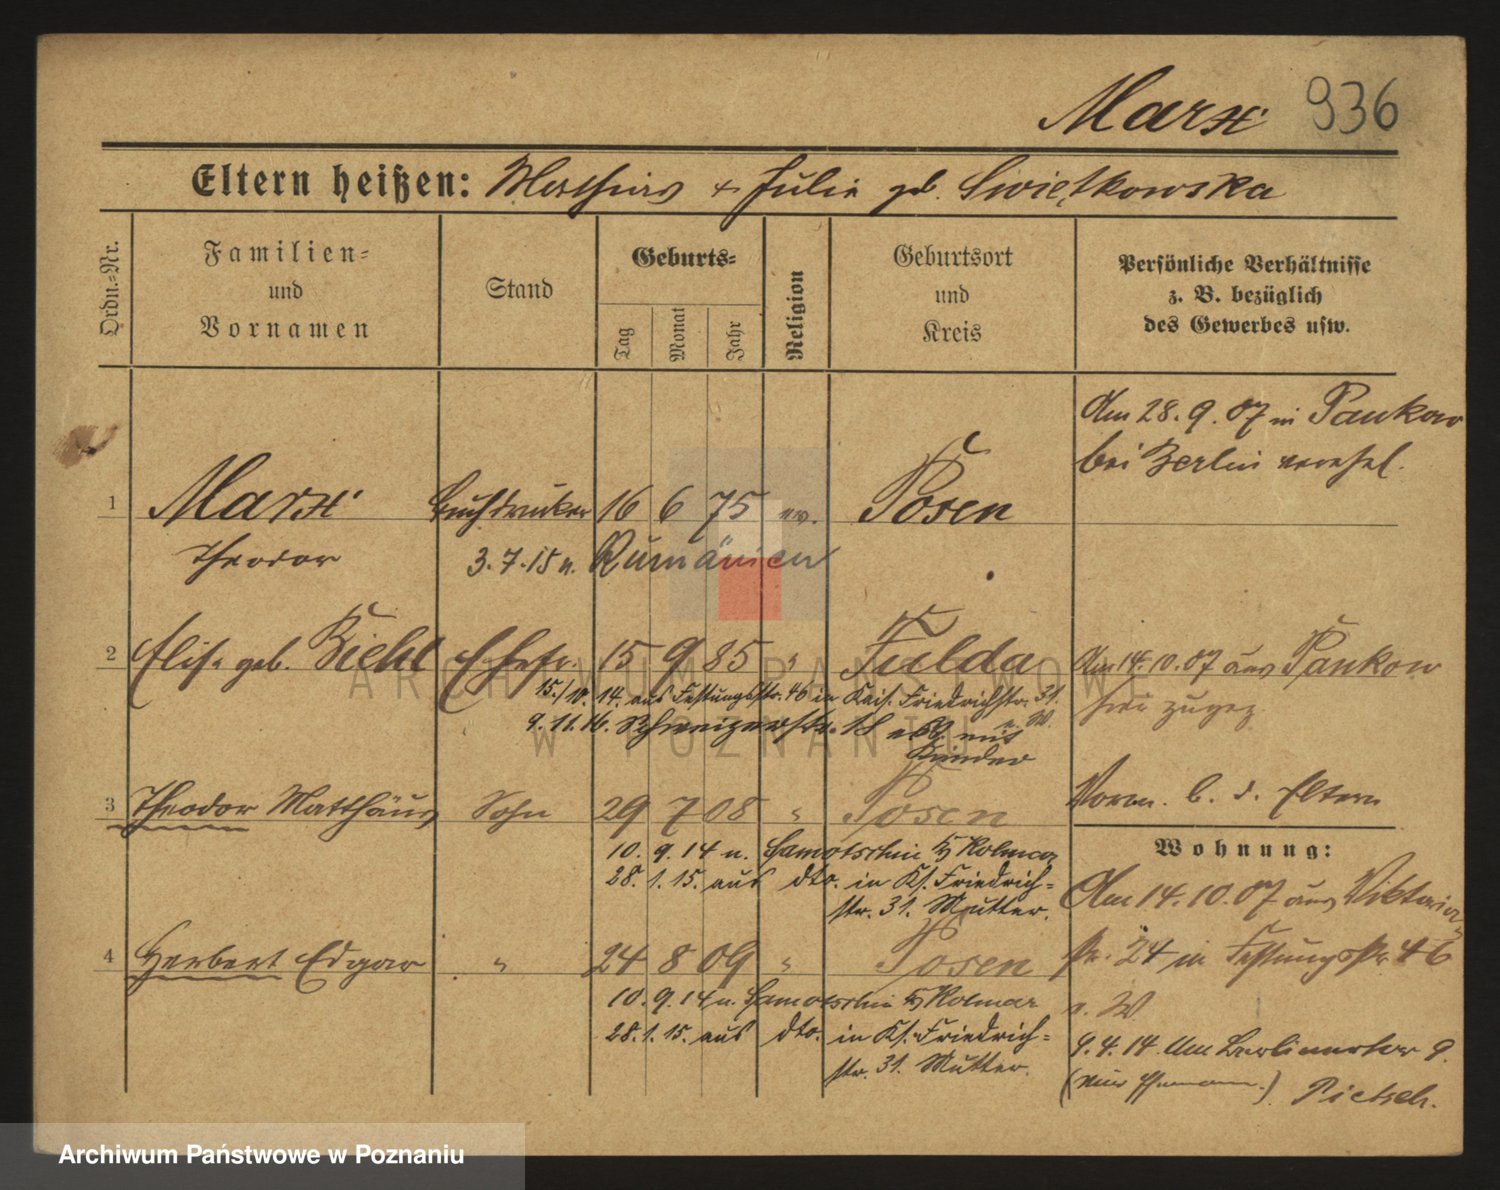 Marx 936
Eltern heißen: Matthias + Julie geb. Swiętkowska
Ordn.-Nr.
Familien-
und
Vornamen
Stand
Geburts-
Tag
Monat
Jahr
Religion
Geburtsort
und
Kreis
Persönliche Verhältnisse
z. B. bezüglich
des Gewerbes usw.
Am 28.9.07 in Pankow
bei Berlin verehel.
1 Marx Buchdrucker 16 6 75 ev. Posen
Theodor 3.7.15 n. Rumänien
2 Elise geb. Biehl Ehefr. 15 9 85 " Fulda Am 14.10.07 aus Pankow
hier zugez.
15./10. 14. aus Festungsstr. 46 in Kais. Friedrichstr. 31.
n. W.
9.11.16. Schweizerstr. mit
Kinder
3 Theodor Matthäus Sohn 29 7 08 " Posen
Vorm. b. d. Eltern
10. 9. 14 n. Samotschin Kr Kolmar
28. 1. 15. aus dto. in Ks. Friedrich-
str. 31. Mutter.
4 Herbert Edgar " 24 8 09 " Posen
10. 9. 14 n. Samotschin Kr Kolmar
28. 1. 15. aus dto. in Ks. Friedrich-
str. 31. Mutter.
Wohnung:
Am 14.10.07 aus Viktoria
str. 24 in Festungsstr. 46
n. W
9.4.14. Am Berlinertor 9.
(nur Ehemann.) Pietsch.
ARCHIWUM PAŃSTWOWE
W POZNANIU
Archiwum Państwowe w Poznaniu